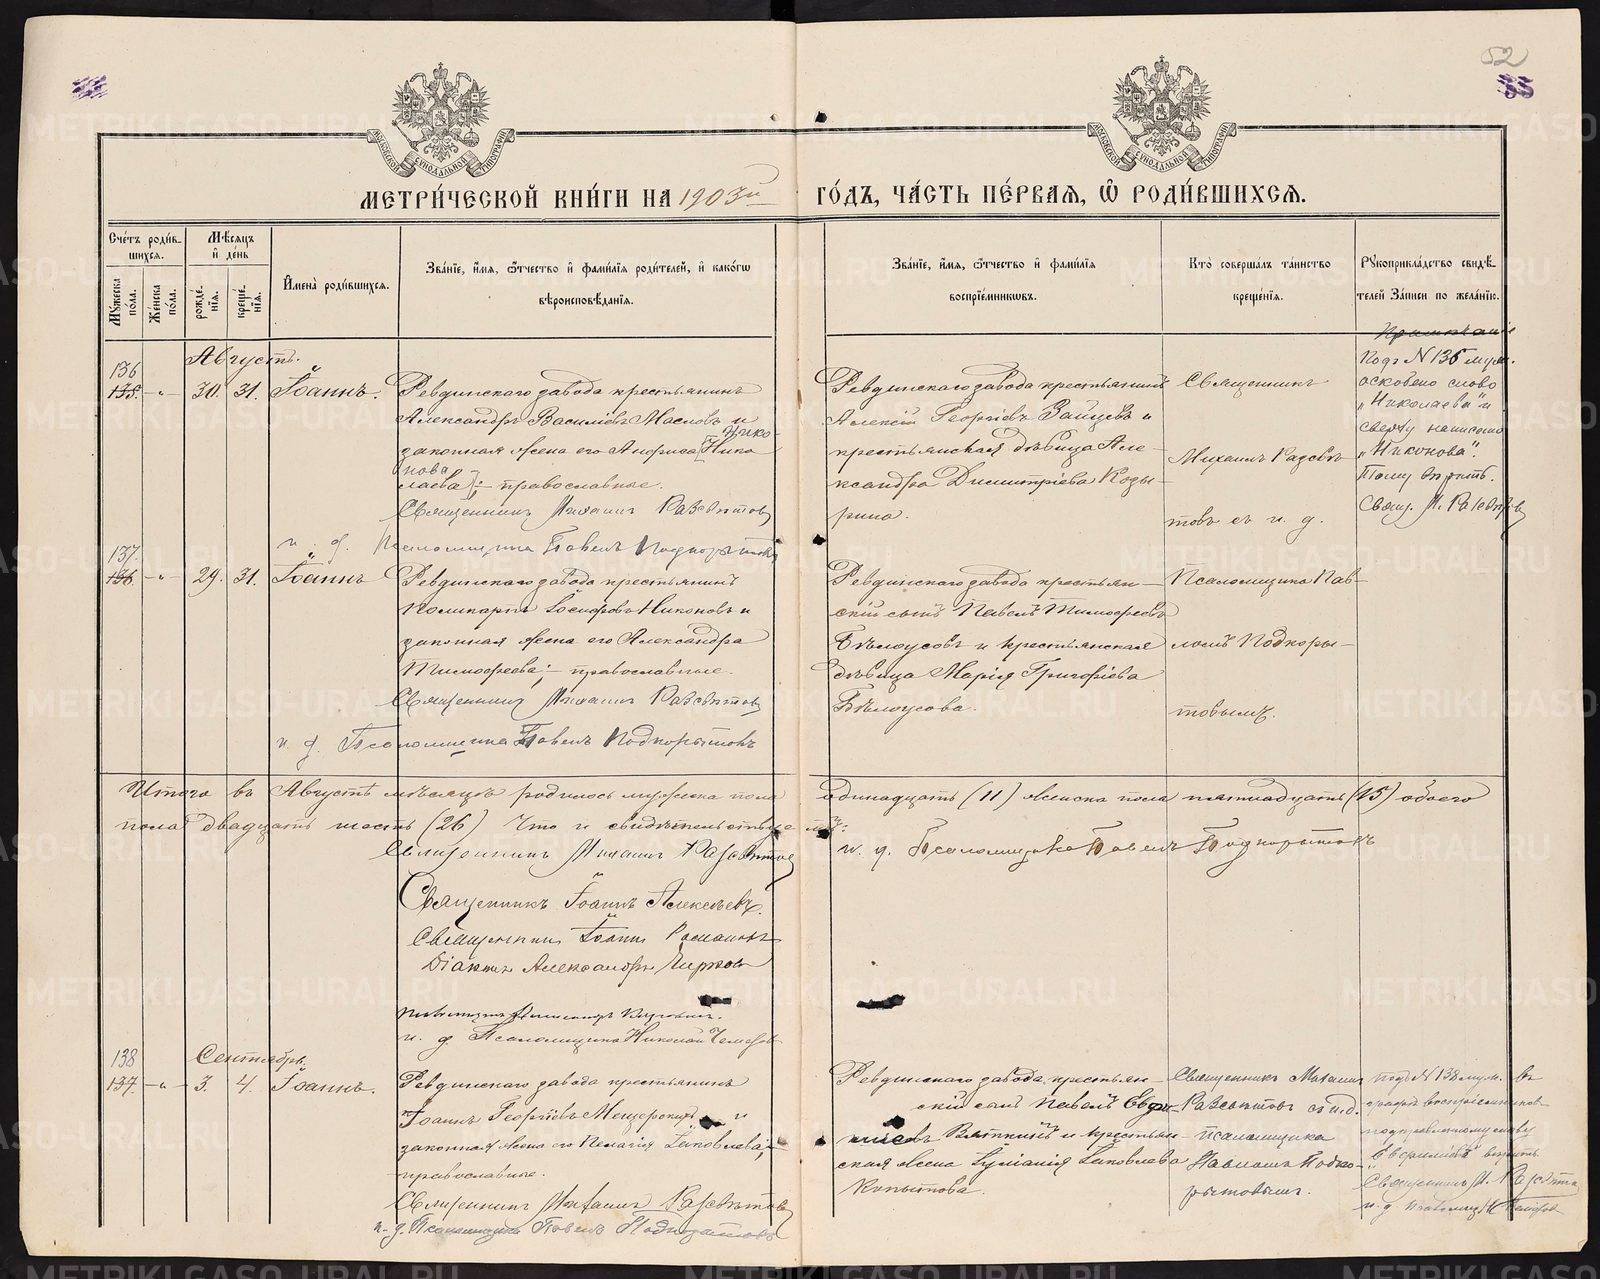 52
МОСКОВСКОЙ СѴНОДАЛЬНОЙ ТИПОГРАФІИ
МОСКОВСКОЙ СѴНОДАЛЬНОЙ ТИПОГРАФІИ
МЕТРИ́ЧЕСКОЙ КНИ́ГИ НА 1903й ГО́ДЪ, ЧА́СТЬ ПЕ́РВАЯ, Ѽ РОДИ́ВШИХСЯ.
Сче́тъ роди́в-
шихся.
Му́жеска по́ла.
Же́нска по́ла.
Мѣ́сяцъ и де́нь
рожде́-
нія.
креще́-
нія.
Имена̀ роди́вшихся.
Зва́ніе, и́мя, ѻ́тчество и фами́лія роди́телей, и како́гѡ
вѣроисповѣ́данія.
Зва́ніе, и́мя, ѻ́тчество и фами́лія
воспріе́мникѡвъ.
Кто̀ соверша́лъ та́инство
креще́нія.
Рꙋкоприкла́дство свидѣ́-
телей за́писи по жела́нію.
Августъ.
136
135. -„- 30. 31. Іоаннъ.
Ревдинскаго завода крестьянинъ
Александръ Василіевъ Масловъ и
законная жена его Анфиса Нико
нова
лаева; - православные.
Священникъ Михаилъ Разсвѣтовъ
и. д. Псаломщика Павелъ Подкорытовъ
Ревдинскаго завода крестьянинъ
Алексій Георгіевъ Зайцевъ и
крестьянская дѣвица Але-
ксандра Димитріева Козы-
рина.
Священникъ
Михаилъ Разсвѣ-
товъ съ и. д.
Примѣчаніе
Подъ N 136 муж.
оскоблено слово
„Николаева" и
сверху написано
„Никонова".
Тому вѣрить.
Свящ. М. Разсвѣтовъ
137.
136. -„- 29. 31. Іоаннъ
Ревдинскаго завода крестьянинъ
Поликарпъ Іосифовъ Никоновъ и
законная жена его Александра
Тимофеева; - православные.
Священникъ Михаилъ Разсвѣтовъ
и. д. Псаломщика Павелъ Подкорытовъ
Ревдинскаго завода крестьян-
скій сынъ Павелъ Тимофеевъ
Бѣлоусовъ и крестьянская
дѣвица Марія Григоріева
Бѣлоусова.
Псаломщика Пав-
ломъ Подкоры-
товымъ.
Итого въ Августѣ мѣсяцѣ родилось мужска пола одинадцать (11) женска пола пятнадцать (15) обоего
пола двадцать шесть (26) Что и свидѣтельствуемъ:
Священникъ Михаилъ Разсвѣтовъ
и. д. Псаломщика Павелъ Подкорытовъ
Священникъ Іоаннъ Алексѣевъ.
Священникъ Іоаннъ
Діаконъ Александръ
и. д. Псаломщика Николай
Сентябрь.
138
137. -„- 3. 4. Іоаннъ.
Ревдинскаго завода крестьянинъ
Іоаннъ Георгіевъ Мещеряковъ и
законная жена его Пелагія Іаковлева;
православные.
Священникъ Михаилъ Разсвѣтовъ
и. д. Псаломщика Павелъ Подкорытовъ
Ревдинскаго завода крестьян-
скій сынъ Павелъ
Вяткинъ и крестьян-
ская жена Іуліанія Іаковлева
Копытова.
Священникъ Михаилъ
Разсвѣтовъ съ и. д.
псаломщика
Павломъ Подко-
рытовымъ.
Подъ N 138 муж. въ
графѣ воспріемниковъ
подправленному слову
вѣрить
Священникъ М. Разсвѣтовъ
и. д. Псаломщ.